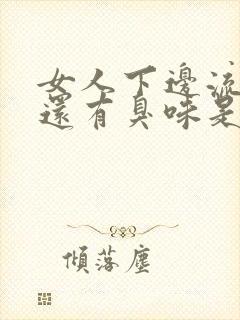 女人下邊流
還有臭味是
傾落塵